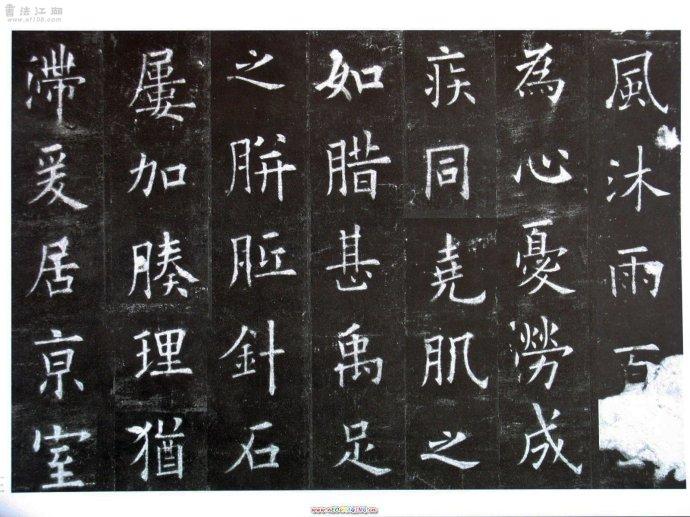 書法江湖
www.sf108.com
風沐雨百
為心憂勞成
疾同堯肌之
如腊甚禹足
之腁胝針石
屢加腠理猶
滯爰居京室